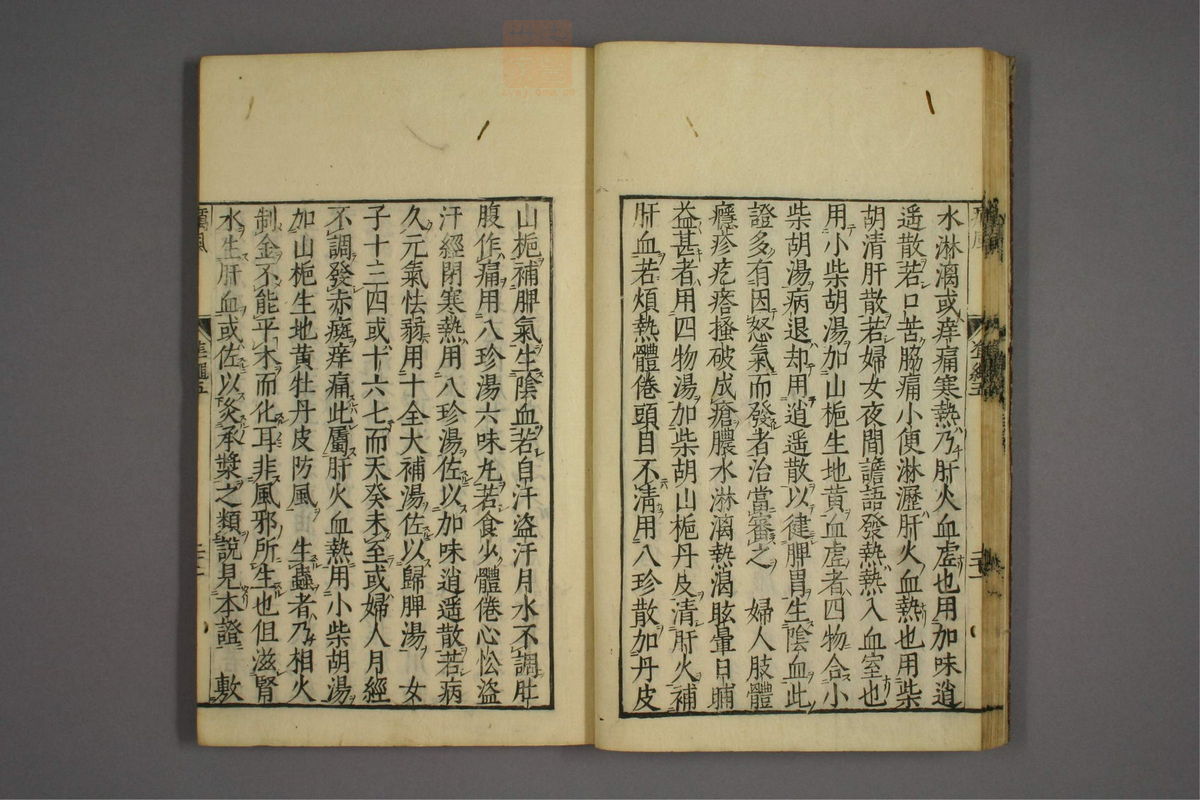 水淋漓或痒痛寒熱乃肝火血虚也用加味逍
遥散若口苦脇痛小便淋瀝肝火血熱也用柴
胡清肝散若婦女夜間譫語發熱熱入血室也
用小柴胡湯加山梔生地黄血虚者四物合小
柴胡湯病退却用逍遥散以健脾胃生陰血此
證多有因怒氣而發者治當審之　婦人肢體
癮疹疙瘩搔破成瘡膿水淋漓熱渴眩暈日晡
益甚者用四物湯加柴胡山梔丹皮清肝火補
肝血若煩熱體倦頭目不清用八珍散加丹皮
山梔補脾氣生陰血若自汗盗汗月水不調肚
腹作痛用八珍湯六味丸若食少體倦心忪盗
汗經閉寒熱用八珍湯佐以加味逍遥散若病
久元氣怯弱用十全大補湯佐以歸脾湯　女
子十三四或十六七而天癸未至或婦人月經
不調發赤癍痒痛此屬肝火血熱用小柴胡湯
加山梔生地黄牡丹皮防風　生蟲者乃相火
制金不能平木而化耳非風邪所生也但滋腎
水生肝血或佐以灸承漿之類說見本證　敷